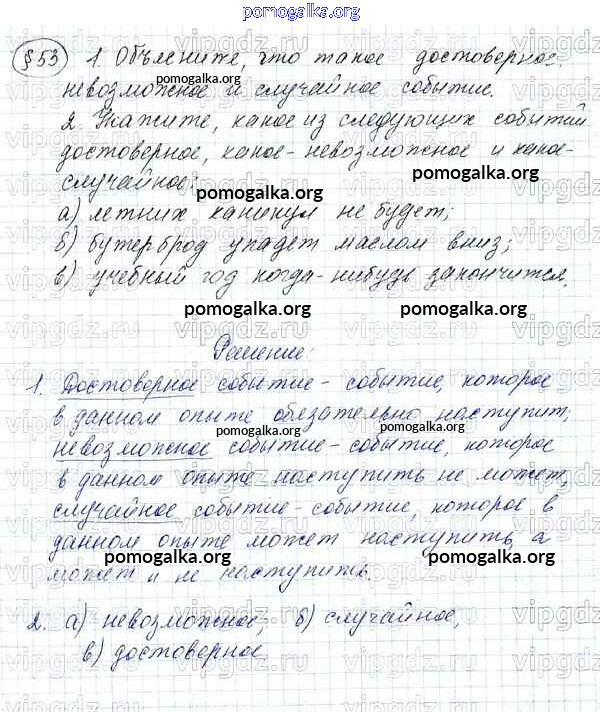 pomogalka.org
§53 1. Объясните, что такое достоверное,
pomogalka.org
невозможное и случайное событие.
2. Укажите, какое из следующих событий
достоверное, какое - невозможное и какое -
случайное:
pomogalka.org pomogalka.org
а) летних каникул не будет;
б) бутерброд упадет маслом вниз;
в) учебный год когда-нибудь закончится.
pomogalka.org pomogalka.org
Решение:
1. Достоверное событие - событие, которое
в данном опыте обязательно наступит,
pomogalka.org
невозможное событие - событие, которое
в данном опыте наступить не может,
pomogalka.org
случайное событие - событие, которое в
данном опыте может наступить, а
pomogalka.org pomogalka.org
может и не наступить.
2. а) невозможное, б) случайное,
в) достоверное
pomogalka.org